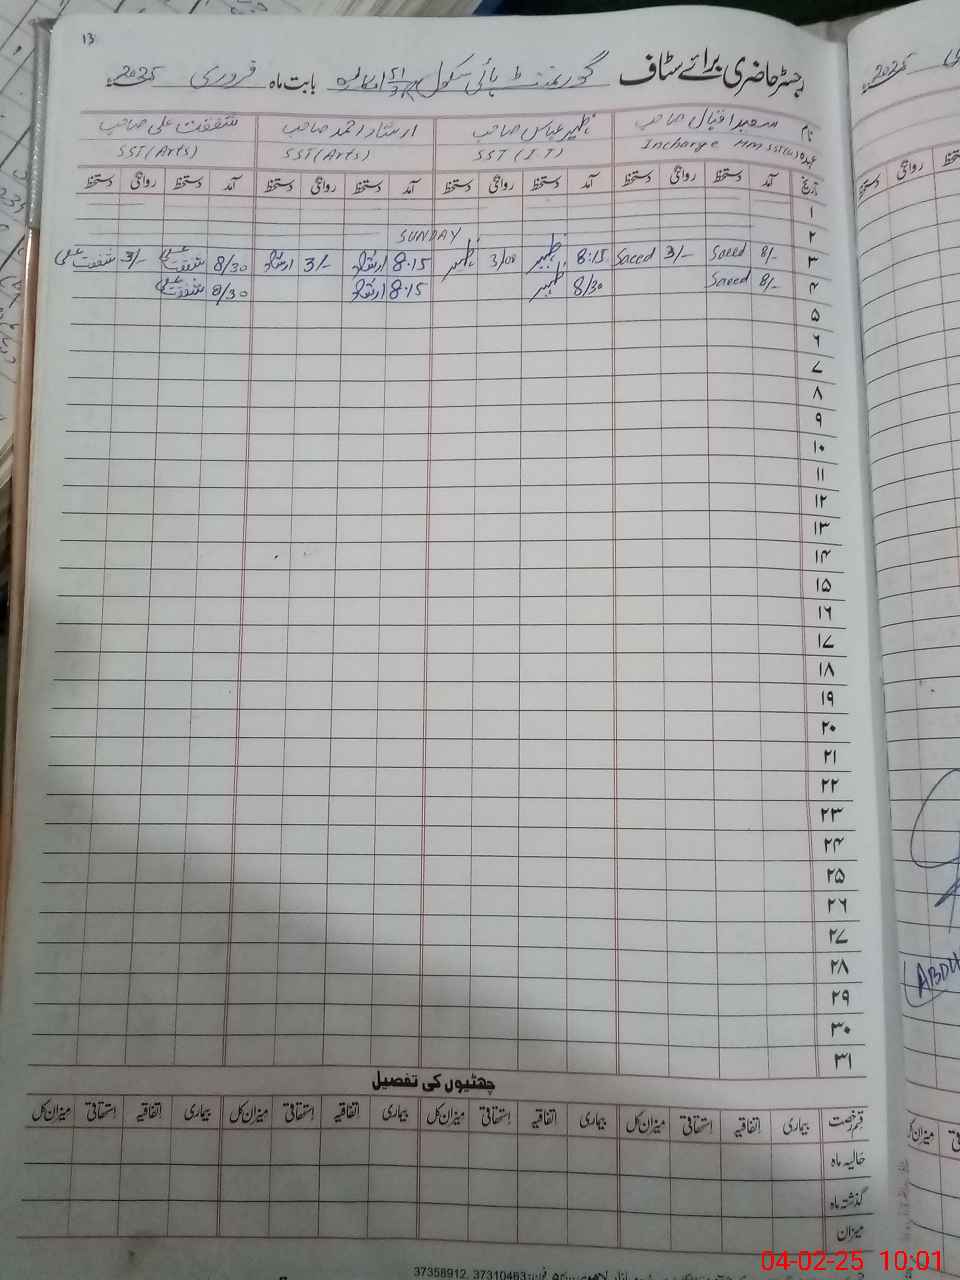 13
رجسٹر حاضری برائے سٹاف گورنمنٹ ہائی سکول بابت ماہ فروری 2025ء
نام سعید اقبال صاحب ظہیر عباس صاحب ارشاد احمد صاحب شفقت علی صاحب
عہدہ Incharge HM SST(IT) SST(Arts) SST(Arts)
تاریخ آمد دستخط روانگی دستخط آمد دستخط روانگی دستخط آمد دستخط روانگی دستخط آمد دستخط روانگی دستخط
۱
۲ SUNDAY
۳ 8/- Saeed 3/- Saeed 8:15 ظہیر 3/00 ظہیر 8.15 ارشاد 3/- ارشاد 8/30 شفقت علی 3/- شفقت علی
۴ 8/- Saeed 8/30 ظہیر 8.15 ارشاد 8/30 شفقت علی
۵
۶
۷
۸
۹
۱۰
۱۱
۱۲
۱۳
۱۴
۱۵
۱۶
۱۷
۱۸
۱۹
۲۰
۲۱
۲۲
۲۳
۲۴
۲۵
۲۶
۲۷
۲۸
۲۹
۳۰
۳۱
چھٹیوں کی تفصیل
قسم رخصت بیماری اتفاقیہ استحقاقی میزان کل بیماری اتفاقیہ استحقاقی میزان کل بیماری اتفاقیہ استحقاقی میزان کل بیماری اتفاقیہ استحقاقی میزان کل
حالیہ ماہ
گذشتہ ماہ
میزان
37358912, 37310463
2025ء
روانگی دستخط
ABDU
میزان کل
04-02-25 10:01